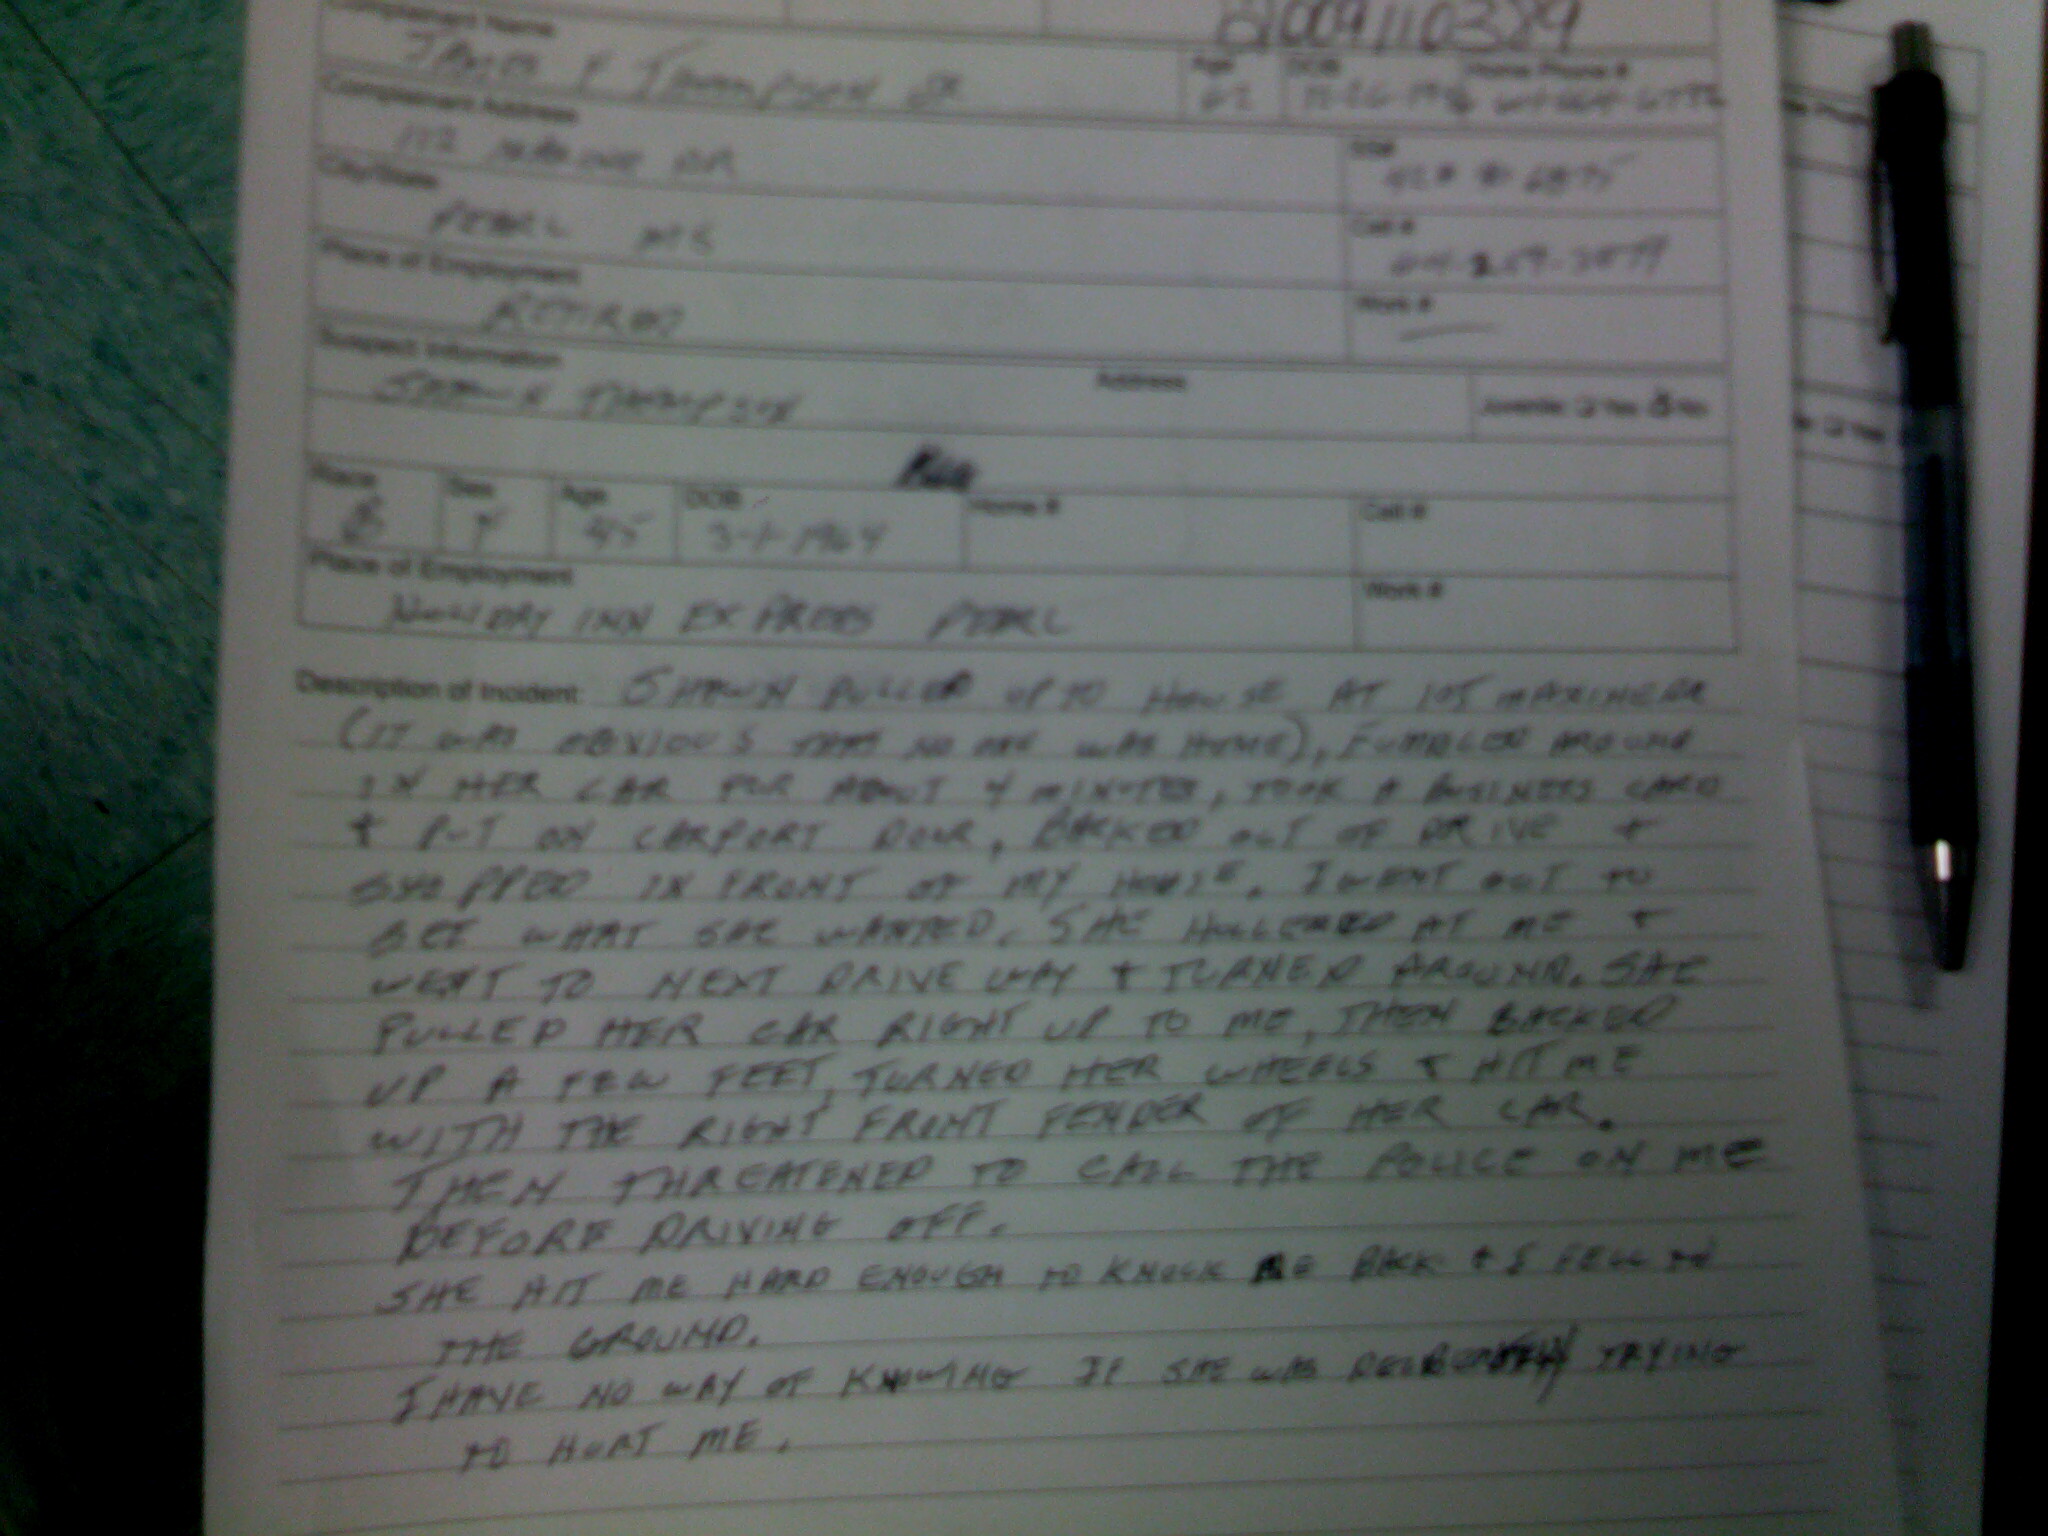 2009110389
Complainant Name
Thompson Jr
Age
62
DOB
Home Phone #
Complainant Address
112 Maxine DR
SS#
City/State
Pearl MS
Cell #
Place of Employment
Retired
Work #
Suspect Information
Address
Juvenile: Yes No
Shawn Thompson
Race
Sex
Age
DOB
Home #
Cell #
B
F
45
3-1-1964
Place of Employment
Work #
Holiday Inn Express Pearl
Description of Incident: SHAWN PULLED UP TO HOUSE AT 105 MAXINE DR
(IT WAS OBVIOUS THAT NO ONE WAS HOME), FUMBLED AROUND
IN HER CAR FOR ABOUT 4 MINUTES, TOOK A BUSINESS CARD
+ PUT ON CARPORT DOOR, BACKED OUT OF DRIVE +
STOPPED IN FRONT OF MY HOUSE. I WENT OUT TO
SEE WHAT SHE WANTED. SHE HOLLERED AT ME +
WENT TO NEXT DRIVE WAY + TURNED AROUND. SHE
PULLED HER CAR RIGHT UP TO ME, THEN BACKED
UP A FEW FEET, TURNED HER WHEELS + HIT ME
WITH THE RIGHT FRONT FENDER OF HER CAR.
THEN THREATENED TO CALL THE POLICE ON ME
BEFORE DRIVING OFF.
SHE HIT ME HARD ENOUGH TO KNOCK ME BACK + I FELL TO
THE GROUND.
I HAVE NO WAY OF KNOWING IF SHE WAS TRYING
TO HURT ME.